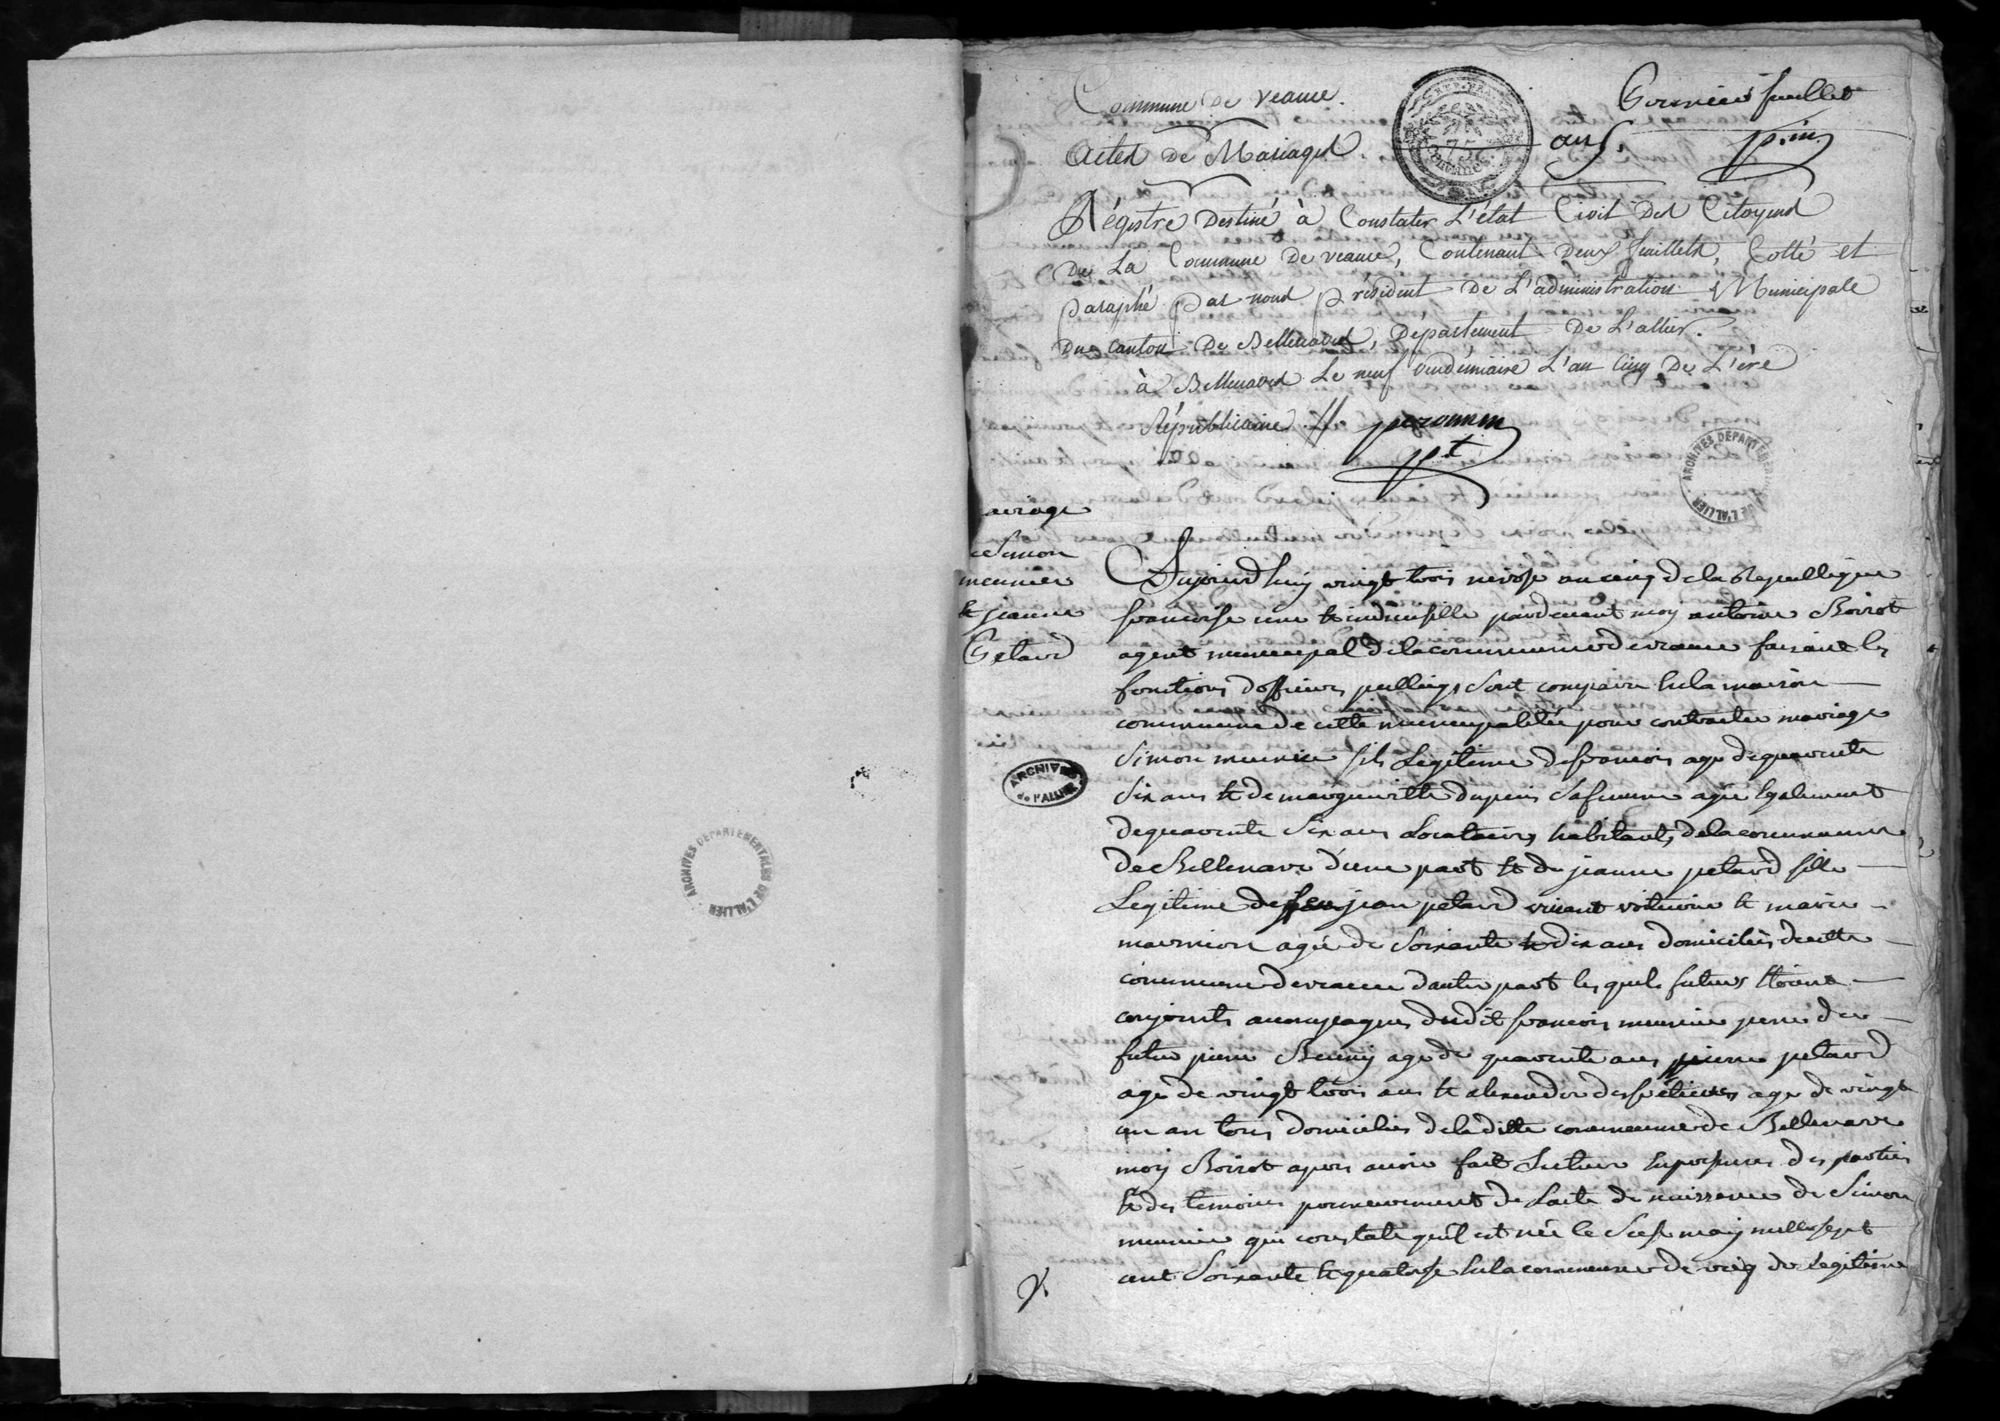 Commune de veauce.
Premier feuillet
Actes de Mariages.
an 5.
p.in
REP. FRA
75
CENTIMES.
Régistre Destiné à Constater L'état Civil Des Citoyens
De La Commune De veauce, Contenant Deux feuillets, Cotté et
paraphé par nous président De L'administration Municipale
Du canton De Bellenaves, Département De L'allier.
à Bellenaves Le neuf vendémiaire L'an Cinq De L'ère
Républicaine.
pt
ARCHIVES DEPARTEMENTALES DE L'ALLIER
ariage
e Simon
meunier
et jeanne
Petard
Aujourd huy vingt trois nivose an cinq de la Republique
francoise une et indivisille pardevant moy antoine Boirot
agent municipal de la commune de veauce faisant les
fonctions d'officier publlique sont comparu en la maison
commune de cette municipalitée pour contracter mariage
Simon meunier fils Légitime de francois agé de quarente
Six ans et de margueritte dupuis Sa femme agée Egalement
de quarente Six ans Locataires habitants de la commune
de Bellenave d'une part et de jeanne petard fille
Légitime de feu jean petard vivant voiturier et marie
marmion agée de Soixante et dix ans domiciliés de cette
commune de veauce dautre part les quels futurs
conjoints acompagnes dudit francois meunier pere du
futur pierre agé de quarente ans pierre petard
agé de vingt trois ans et agé de vingt
un an tous domiciliés de la ditte commune de Bellenave
moy Boirot apres avoir fait Lecture des parties
et des temoins de Lacte de naissance de Simon
meunier qui constate qu'il est née le Sept may mille sept
cent Soixante et quatorse en la commune de de Légitime
ARCHIVES
de L'ALLIER
ARCHIVES DEPARTEMENTALES DE L'ALLIER